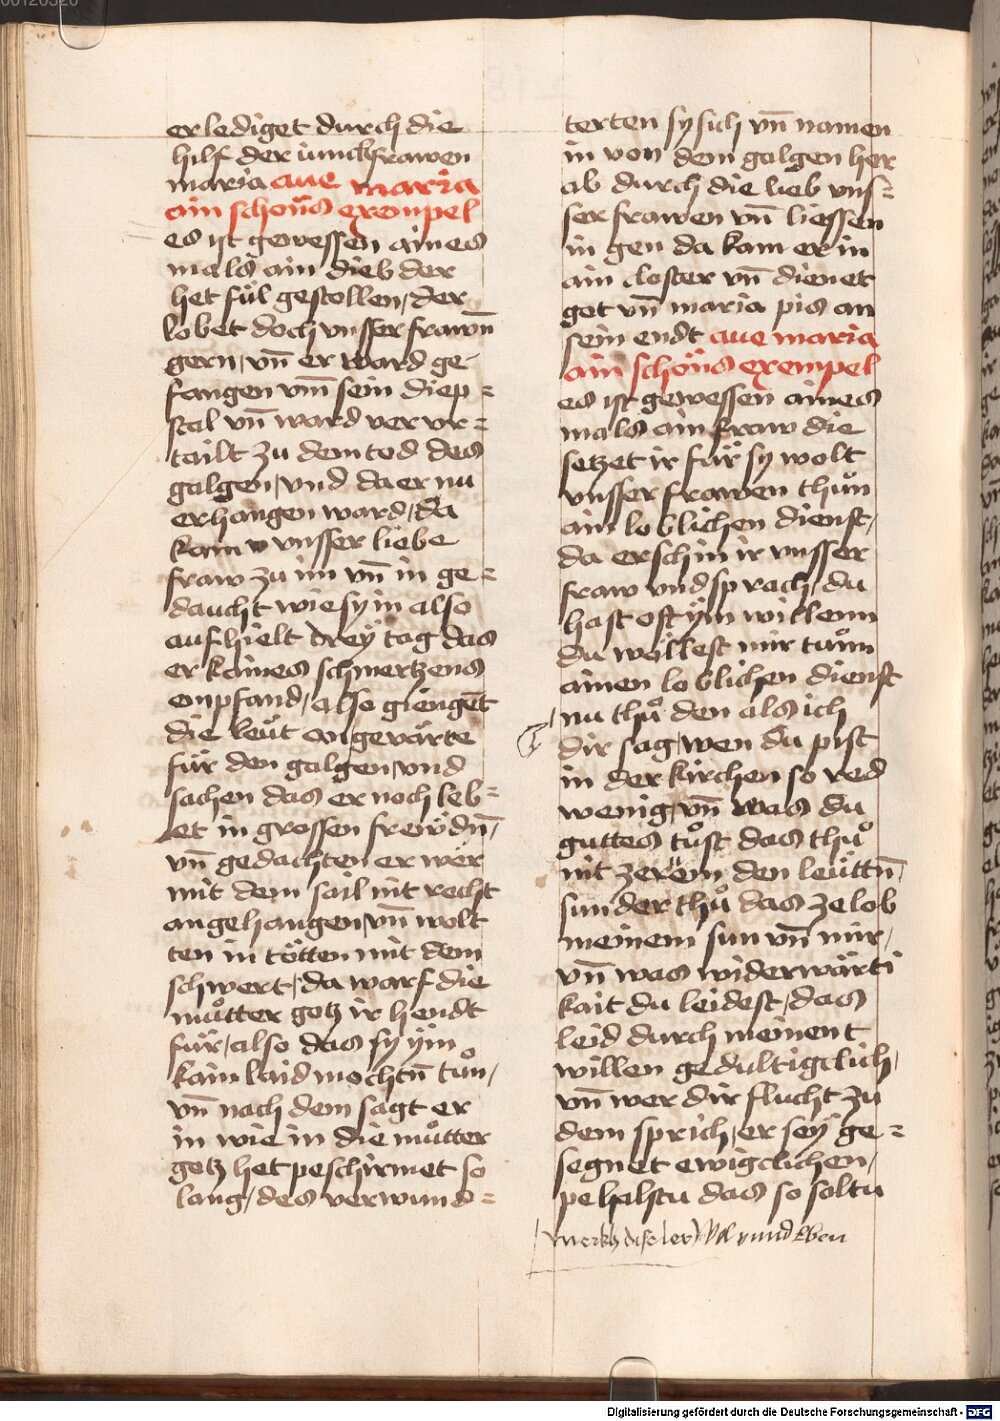 erlediget durch die
hilf der iunckfrawen
maria aue maria
ain schöns exempel
es ist gewessen aines
mals ain dieb der
het fül gestollen, der
lobet doch vnsser frawñ
gern, vñ er ward ge-
fangen vm̃ sein diep=
stal vñ ward ver vr=
tailt zu dem tod des
galgen, vnd da er nu
erhangen ward, da
kam vnsser liebe
fraw zu im vñ in ge=
daucht wie sy in also
auf hielt drey tag das
er kaines schmertzens
enpfand, also giengẽt
die leüt on gevärte
für den galgen, vnd
sachen das er noch leb=
et in grossen freẅdñ,
vñ gedachten er wer
mit dem sail nit recht
angehangen, vñ wolt
ten in tötten mit dem
schwert, da warf die
muͦtter gotz ir hendt
für, also das sy ÿm
kain laid mochtñ tuͦn,
vñ nach dem sagt er
in wie in die muͦtter
gotz het peschirmet so
lang, des verwund=
terten sy sich vñ namen
in von dem galgen her
ab durch die lieb vns=
ser frawen vñ liessen
in gen da kam er in
ain closter vñ dienet
got vñ maria pis an
sein endt aue maria
ain schöns exempel
es ist gewessen aines
mals ain fraw die
setzet ir für sy wolt
vnsser frawen thuͦn
ain loblichen dienst,
da erschin ir vnsser
fraw vnd sprach, du
hast oft ÿm willenn
du wöllest mir tuͦnn
ainen loblichen dienst
nu thuͦ den als ich
dir sag, wen du pist
in der kirchen so red
wenig, vñ was du
guttes tuͦst das thuͦ
nit ze rom den leüttñ,
sunder thuͦ das ze lob
meinem sun vñ mir,
vñ was widerwärti
kait du leidest, das
leid durch meinen t
willen gedultigclich,
vñ wer dir flucht zu
dem sprich, er sey ge=
segnet ewigclichen,
pehalstu das so soltu
merkh diser vnd Eben
Digitalisierung gefördert durch die Deutsche Forschungsgemeinschaft - DFG